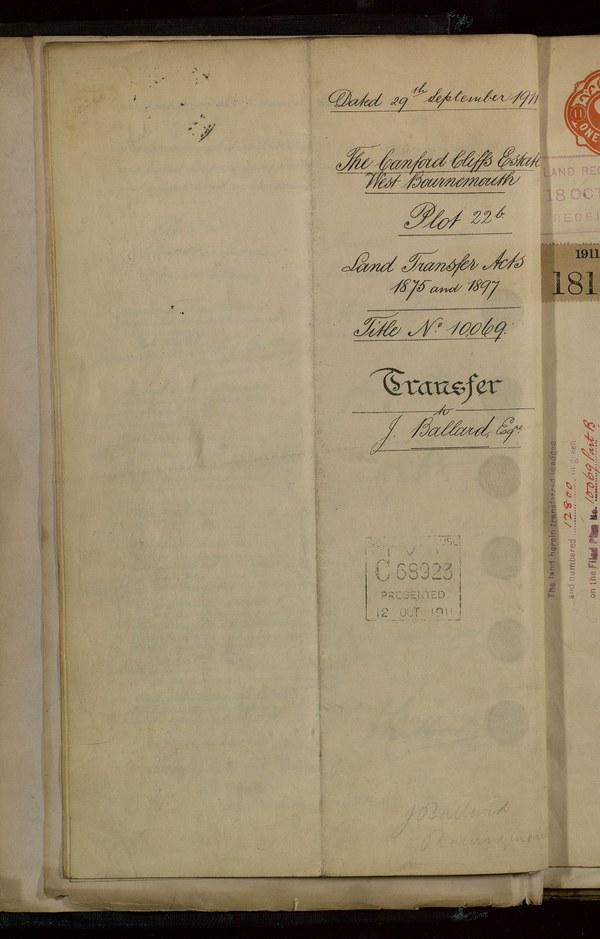 Dated 29th September 1911
The Canford Cliffs Estate
West Bournemouth
Plot 22b
Land Transfer Acts
1875 and 1897
Title No. 10069.
Transfer
to
J. Ballard, Esqre.
C 68923
PRESENTED
12 OCT 1911
J Ballard
ONE
LAND REG
18 OCT
RECEI
1911
181
The land herein transferred is edged
and numbered 12800 in green
on the Filed Plan No. 10069 Part B